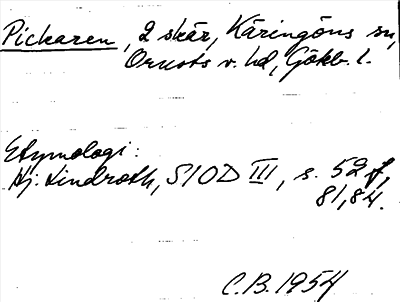 Pickaren, 2 skär, Käringöns sn,
Orusts v. hd, Gökb. l.
Etymologi:
Hj. Lindroth, SIOD III, s. 52 f,
81, 84.
C.B. 1954